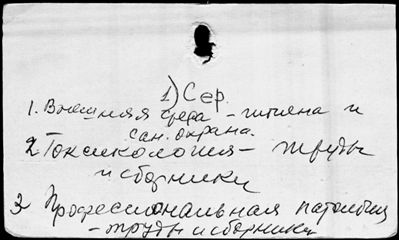 1) Сер.
1. Внешняя среда - гигиена и
сан. охрана.
2. Токсикология - труды
и сборники
3. Профессиональная патология
- труды и сборники